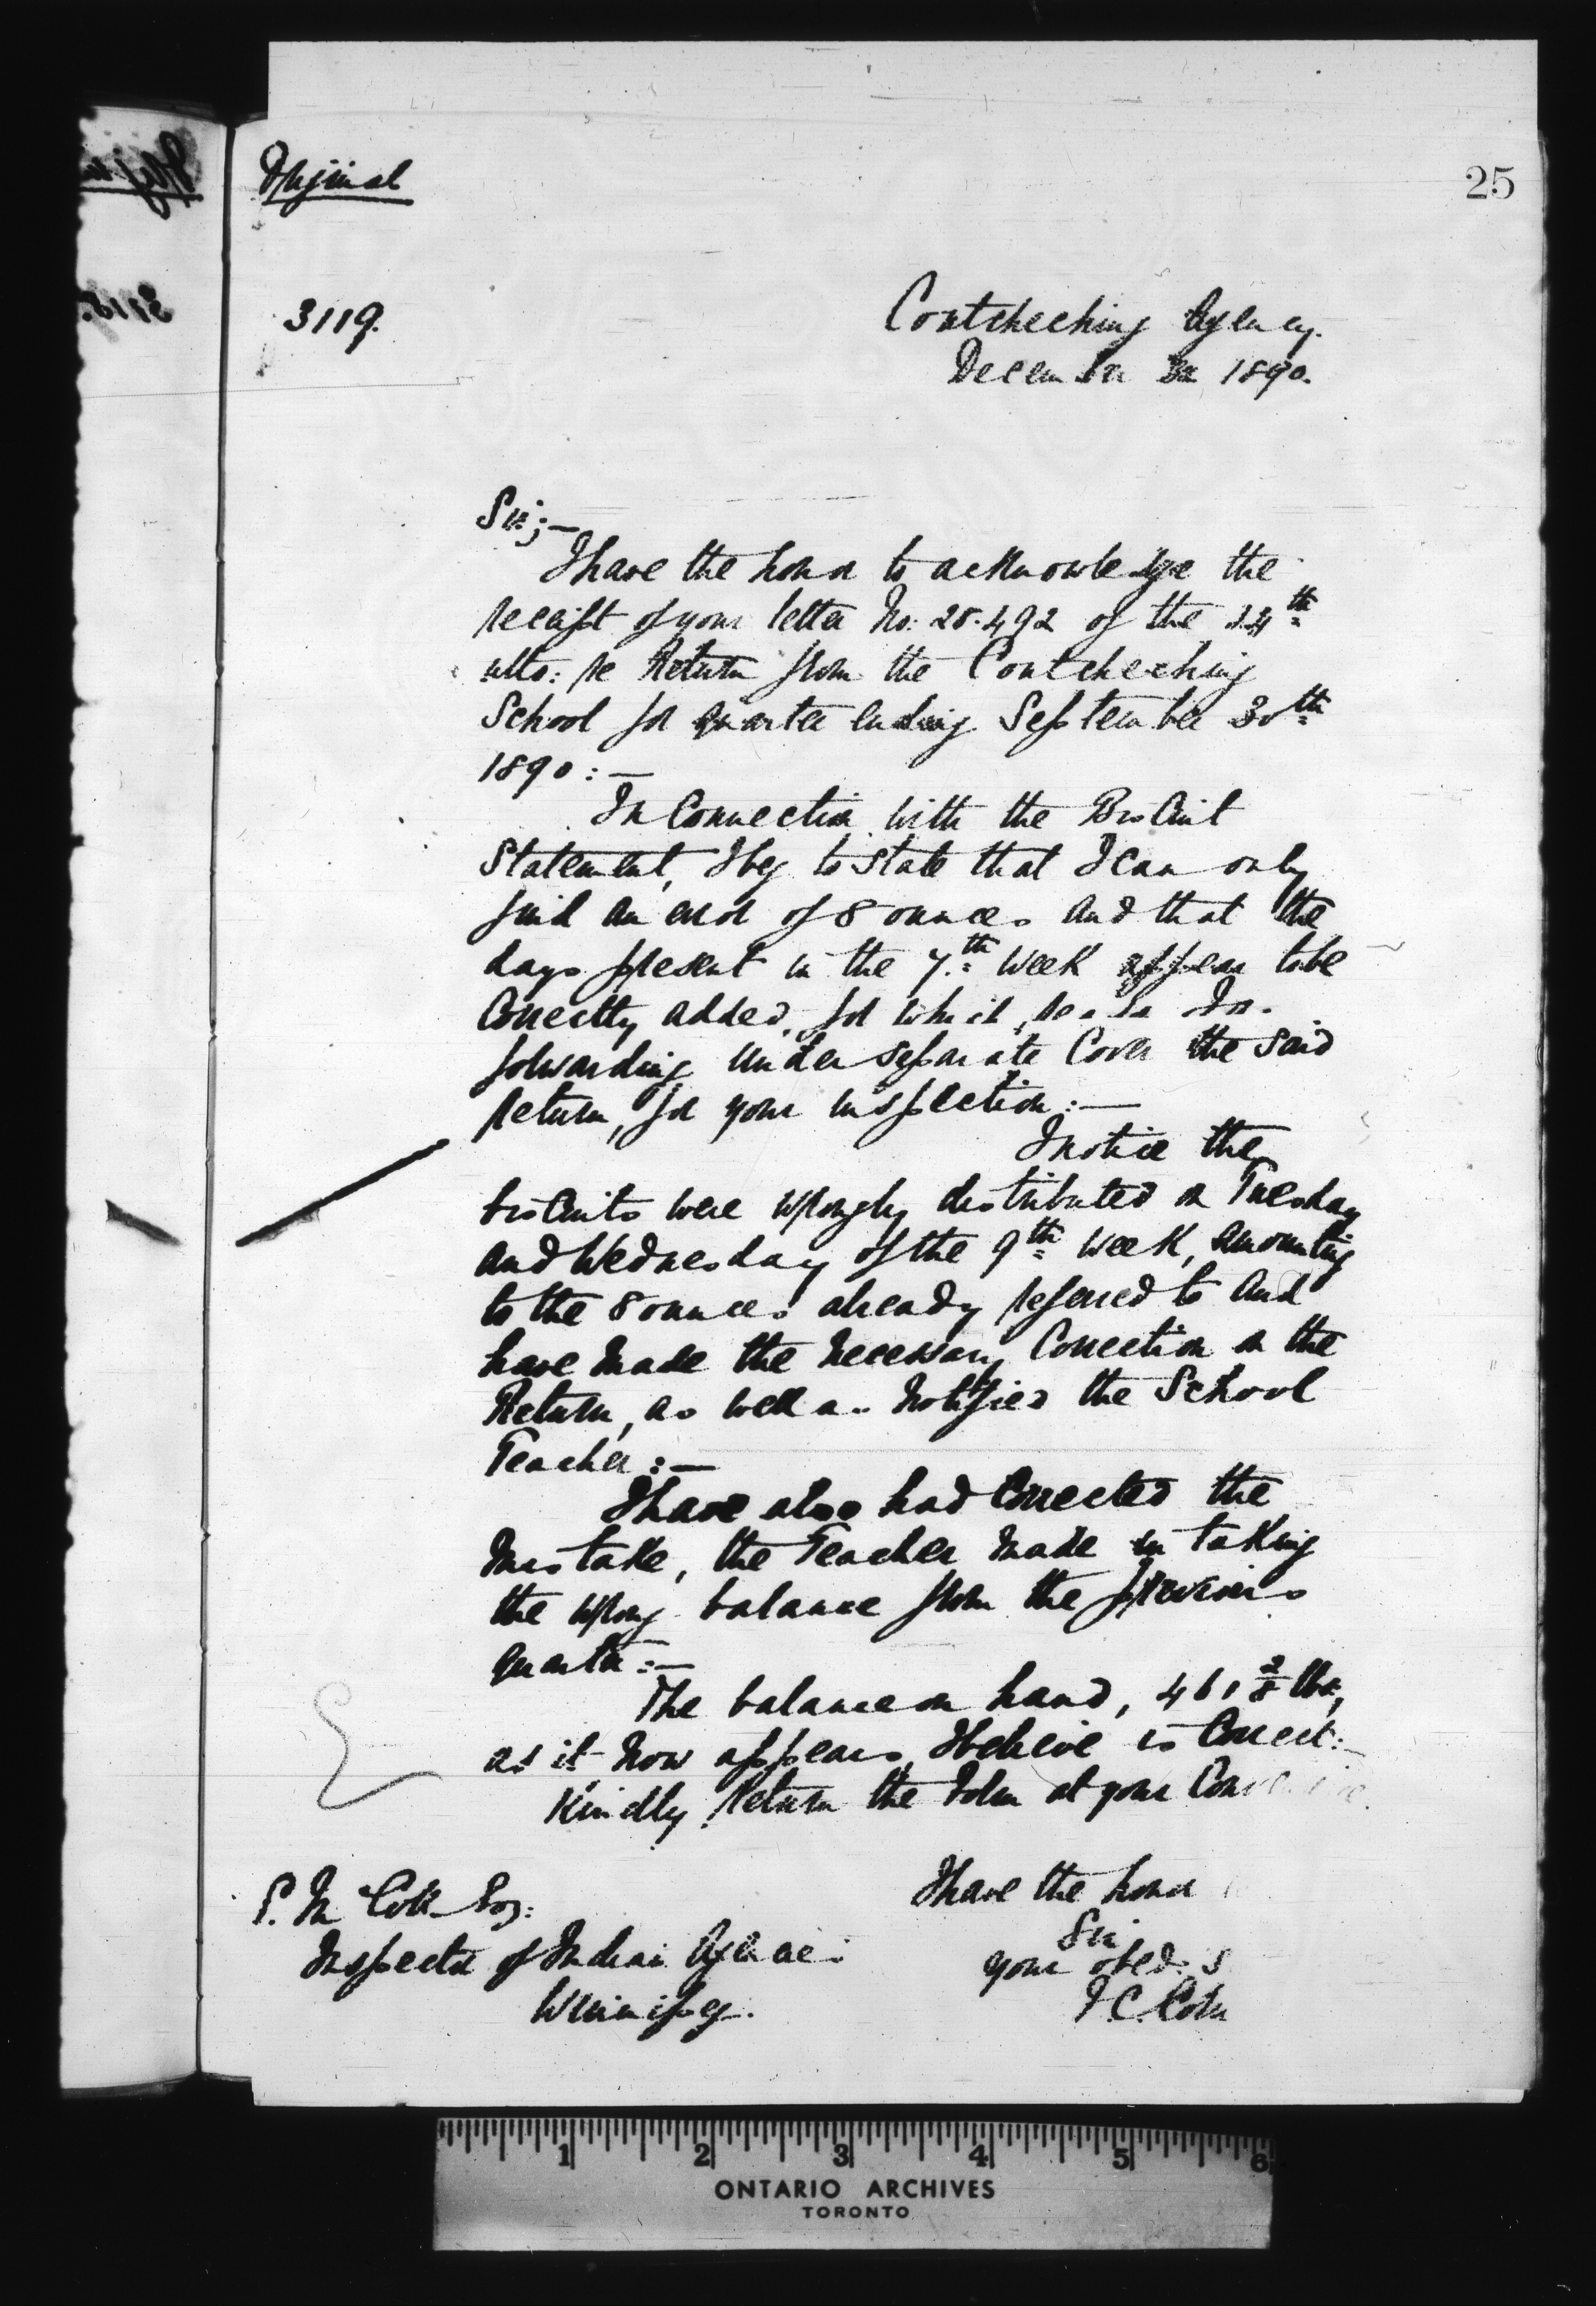 Original
25
3119.
Coutcheching Agency.
December 3rd 1890.
Sir;—
I have the honor to acknowledge the
receipt of your letter No: 28.492 of the 24th
ulto: re Return from the Coutcheching
School for quarter ending September 30th
1890:—
In Connection with the Biscuit
Statement, I beg to state that I can only
find an error of 8 ounces and that the
days present in the 7th week appear to be
Correctly added, for which reason I am
forwarding under separate Cover the said
return, for your inspection:—
I notice the
biscuits were wrongly distributed on Tuesday
and Wednesday of the 9th week, amounting
to the 8 ounces already referred to and
have made the necessary Correction on the
Return, as well as notified the School
Teacher:—
I have also had Corrected the
mistake, the Teacher made in taking
the wrong balance from the previous
quarter:—
The balance on hand, 461 3/8 lbs,
as it now appears, I believe is Correct:—
Kindly return the form at your Convenience.
I have the honor
E. McColl Esq:
Sir
Inspector of Indian Agencies
your obed. S
Winnipeg.